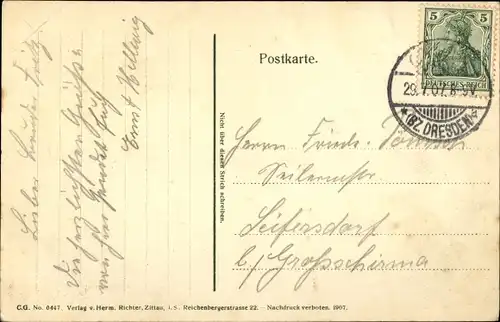 Postkarte.
5 5
DEUTSCHES REICH
29.7.07. 8-9V.
* (BZ. DRESDEN) *
Lieber Bruder Fritz
Die herzlichsten Grüße
von hier sendet Euch
Ernst Hellwig
Nicht über diesen Strich schreiben.
Herrn Friedr.
Seilermstr
Seifersdorf
b/ Großschirma
C.G. No. 0447. Verlag v. Herm. Richter, Zittau, i. S. Reichenbergerstrasse 22. — Nachdruck verboten. 1907.